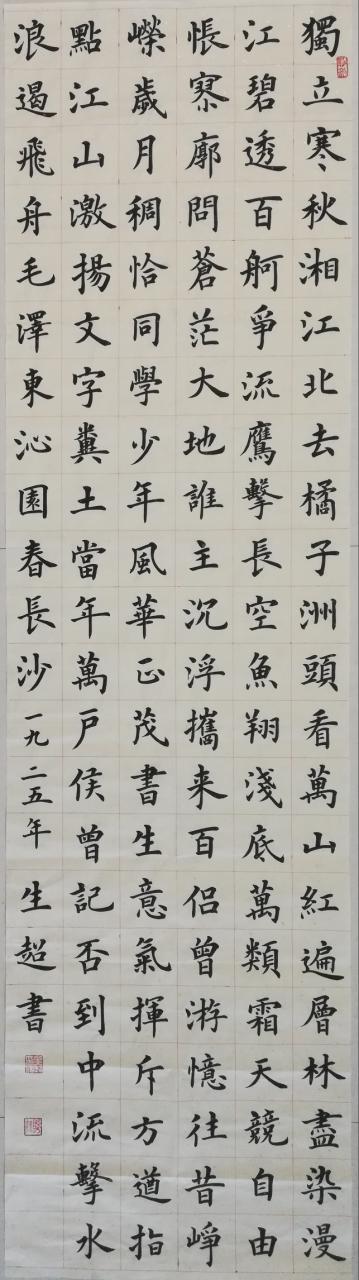 獨立寒秋湘江北去橘子洲頭看萬山紅遍層林盡染漫
江碧透百舸爭流鷹擊長空魚翔淺底萬類霜天競自由
悵寥廓問蒼茫大地誰主沉浮攜来百侣曾游憶往昔崢
嶸歲月稠恰同學少年風華正茂書生意氣揮斥方遒指
點江山激揚文字糞土當年萬户侯曾記否到中流擊水
浪遏飛舟毛澤東沁園春長沙一九二五年生超書